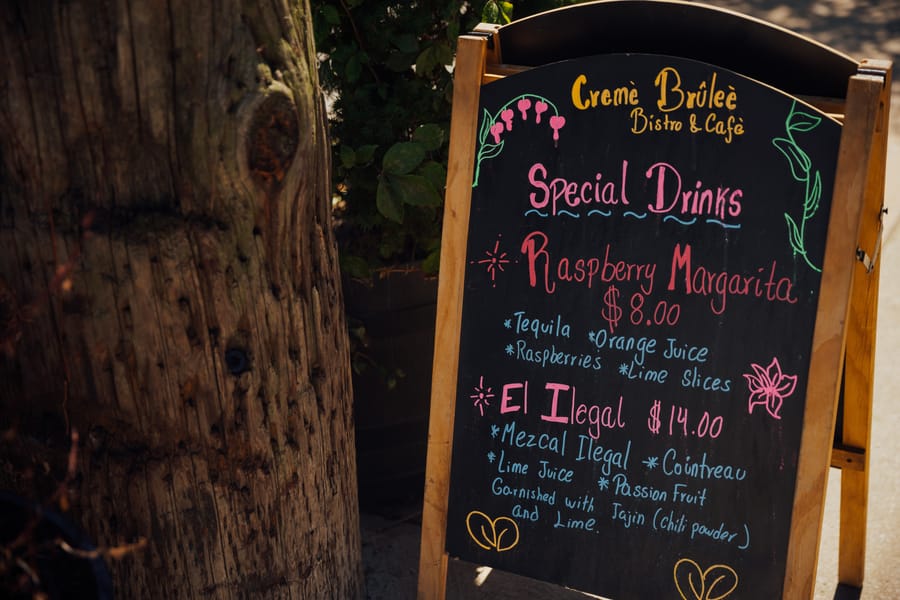 Cremè Brûleè
Bistro & Cafè
Special Drinks
Raspberry Margarita
$8.00
*Tequila *Orange Juice
*Raspberries *Lime Slices
El Ilegal $14.00
*Mezcal Ilegal *Cointreau
*Lime Juice *Passion Fruit
Garnished with Tajin (chili powder)
and Lime.